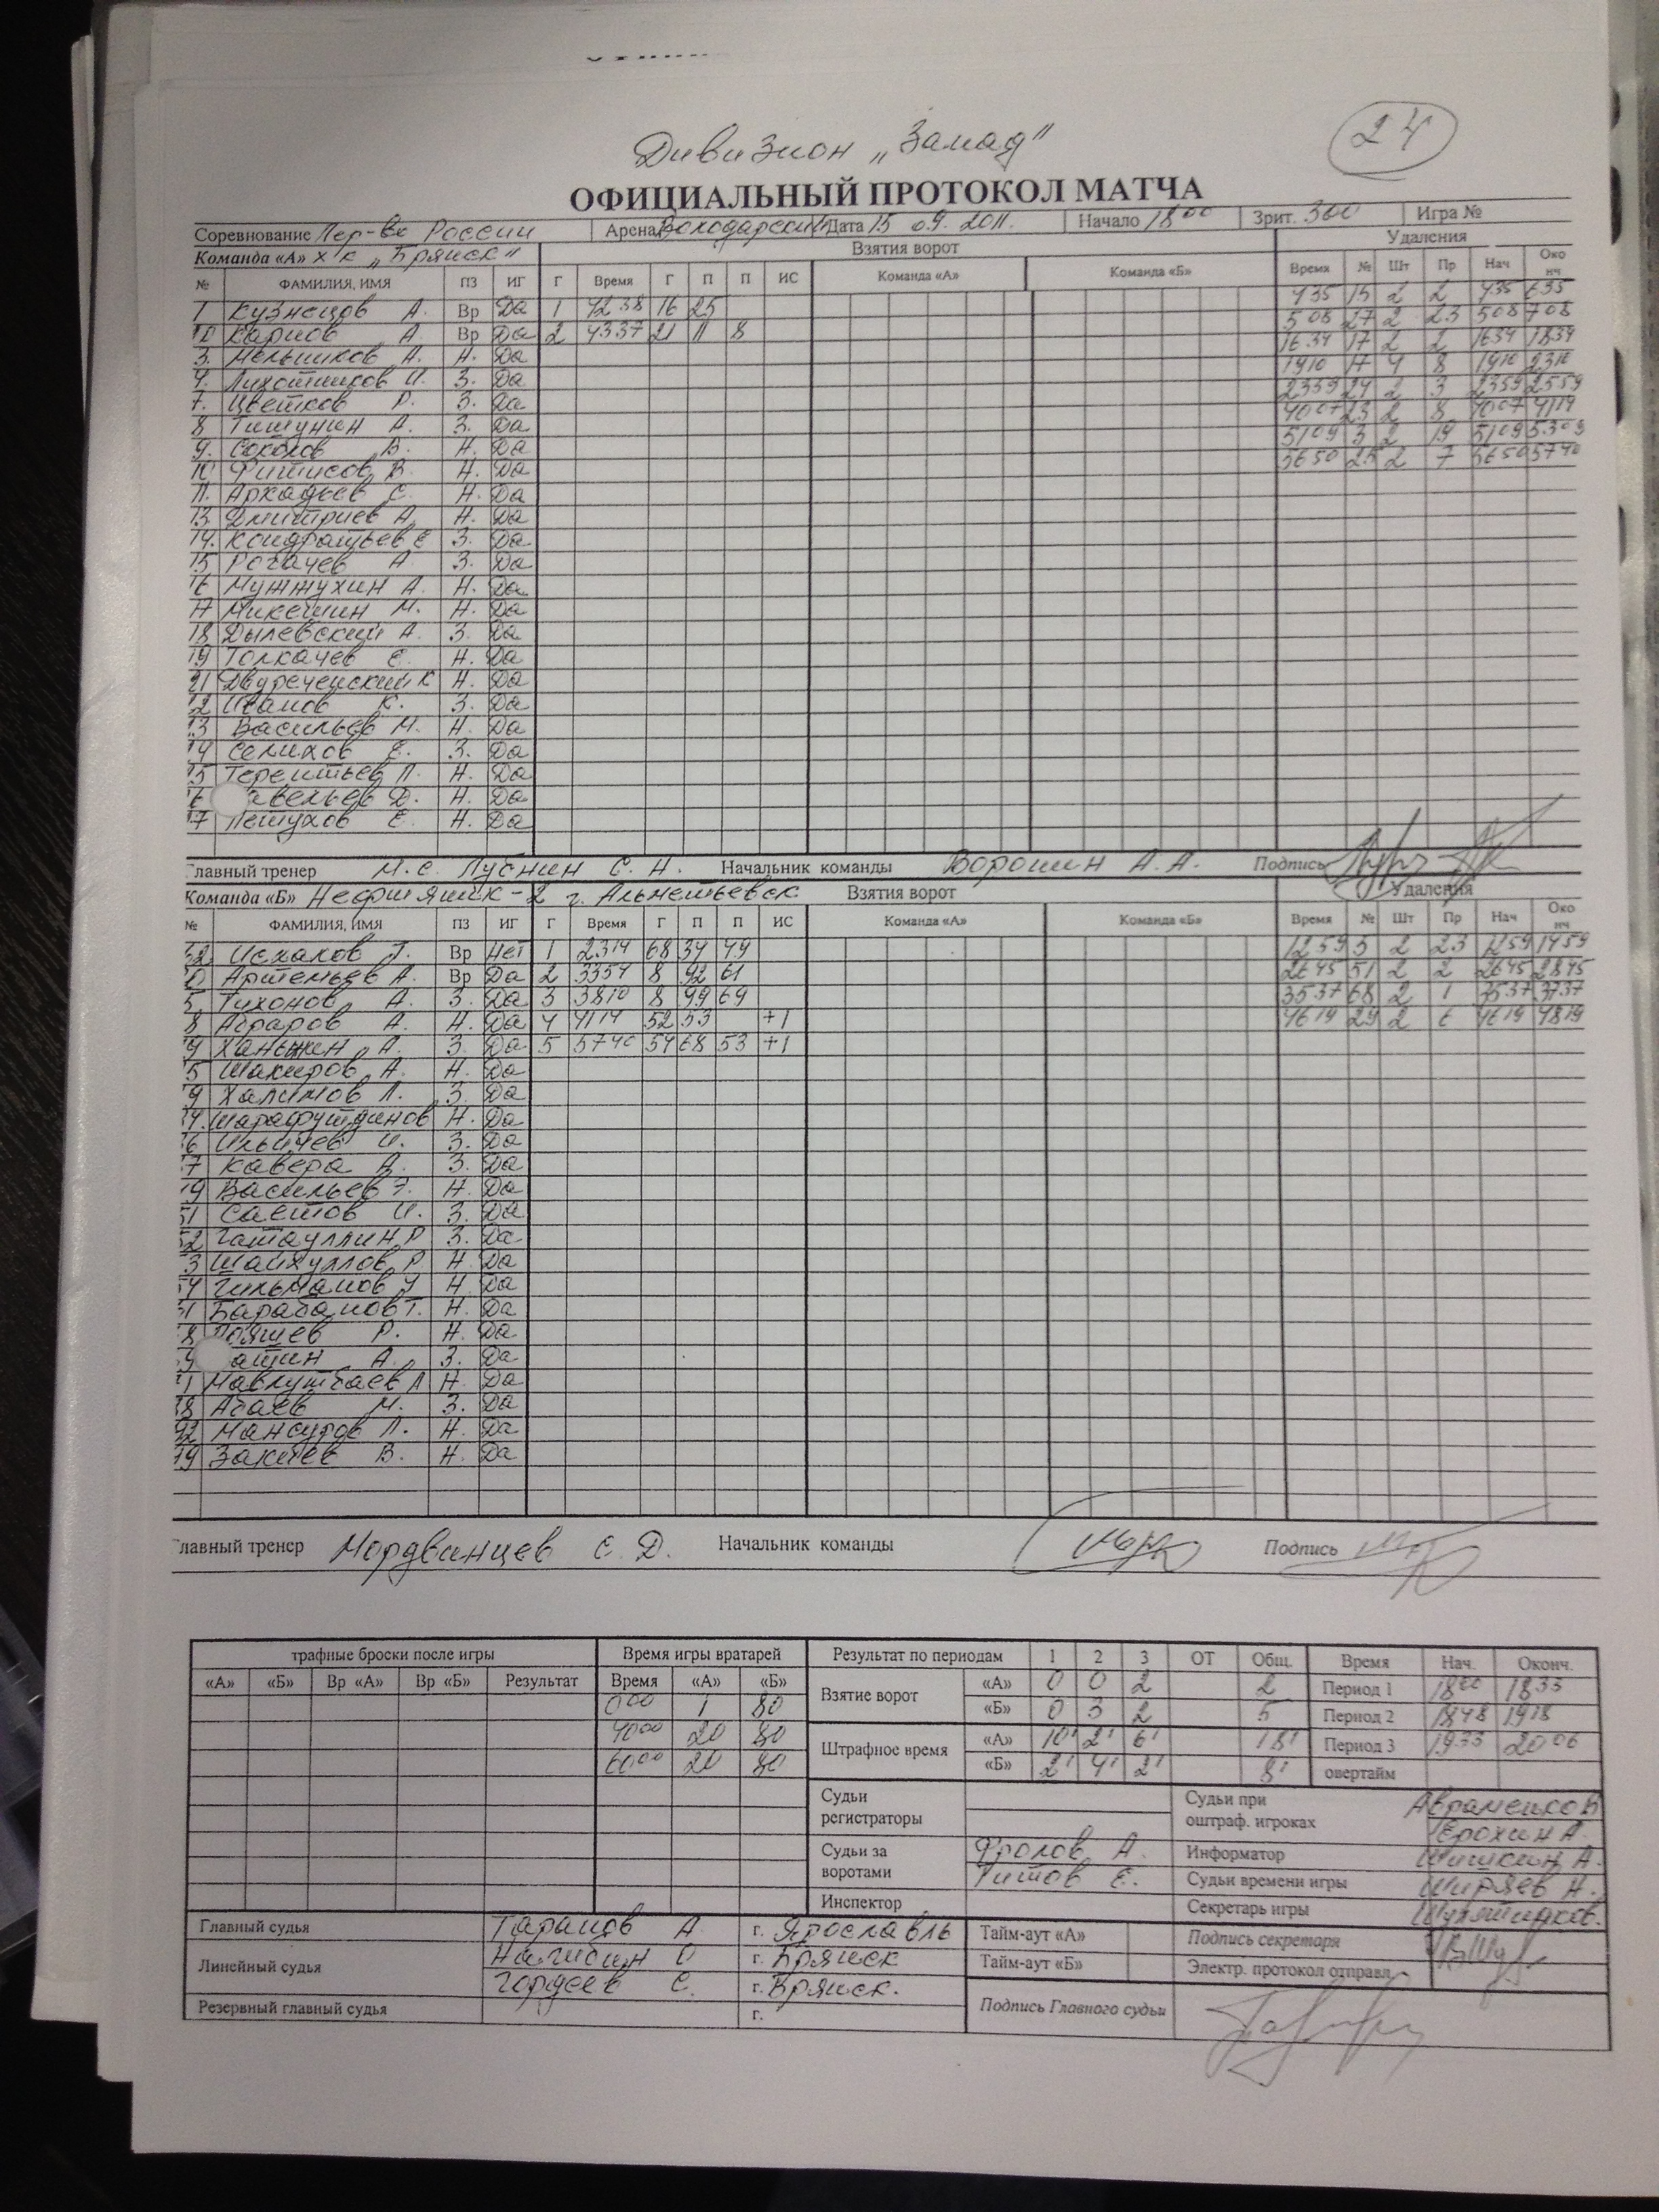 Дивизион „Запад"
24
ОФИЦИАЛЬНЫЙ ПРОТОКОЛ МАТЧА
Соревнование Пер-во России Арена Дата 15 09. 2011. Начало 18 00 Зрит. 300 Игра №
Команда «А» х к „Брянск" Взятия ворот Удаления
№ ФАМИЛИЯ, ИМЯ ПЗ ИГ Г Время Г П П ИС Команда «А» Команда «Б» Время № Шт Пр Нач Око нч
1 Кузнецов А. Вр Да 1 42 38 16 25 4 35 15 2 2 4 35 6 35
Карпов А. Вр Да 2 43 37 21 11 8 5 08 27 2 23 5 08 7 08
3. Мельников А. Н. Да 16 34 17 2 2 16 34 18 34
4. Лихотников И. З. Да 19 10 17 4 8 19 10 23 10
7. Цветков Р. З. Да 23 59 24 2 3 23 59 25 59
8 Тишунин А. З. Да 40 07 23 2 8 40 07 41 14
9. Соколов В. Н. Да 51 09 3 2 19 51 09 53 09
10 Фитисов В. Н. Да 56 50 25 2 7 56 50 57 40
11. Аркадьев С. Н. Да
13. Дмитриев А. Н. Да
14. Кондратьев Е З. Да
15 Рогачев А З. Да
16 Мутжухин А. Н. Да
17 Микешин М. Н. Да
18 Дылевский А. З. Да
19 Толкачев Е. Н. Да
21 Двуреченский К Н. Да
22 Иванов К. З. Да
23 Васильев М. Н. Да
24 Селихов Е. З. Да
25 Терентьев Л. Н. Да
авельев Д. Н. Да
27 Петухов Е. Н. Да
Главный тренер М. С. Лубнин С. Н. Начальник команды Ворошин А. А. Подпись
Команда «Б» Нефтяник-2 г. Альметьевск Взятия ворот Удаления
№ ФАМИЛИЯ, ИМЯ ПЗ ИГ Г Время Г П П ИС Команда «А» Команда «Б» Время № Шт Пр Нач Око нч
Исхаков Т. Вр Нет 1 23 14 68 34 49 12 59 5 2 23 12 59 14 59
Артемьев А. Вр Да 2 33 54 8 92 61 26 45 51 2 2 26 45 28 45
5 Тихонов А. З. Да 3 38 10 8 99 69 35 37 68 2 1 35 37 37 37
8 Абраров А. Н. Да 4 41 14 52 53 +1 46 19 29 2 6 46 19 48 19
Ханыжин А. З. Да 5 57 40 54 68 53 +1
Шакиров А. Н. Да
Халимов Л. З. Да
Шарафутдинов Н. Да
Ильичев И. З. Да
Кавера А. З. Да
Васильев Э. Н. Да
51 Саетов И. З. Да
52 Гатауллин Р З. Да
53 Шайхуллов Р. Н. Да
54 Гильманов У Н. Да
61 Барабанов Т. Н. Да
68 Н. Да
69 З. Да
Мавлутбаев А Н. Да
Абаев М. З. Да
92 Мансуров Л. Н. Да
99 Закиев В. Н. Да
Главный тренер Мордвинцев С. Д. Начальник команды Подпись
трафные броски после игры Время игры вратарей Результат по периодам 1 2 3 ОТ Общ. Время Нач. Оконч.
«А» «Б» Вр «А» Вр «Б» Результат Время «А» «Б» Взятие ворот «А» 0 0 2 2 Период 1 18 00 18 33
0 00 1 80 «Б» 0 3 2 5 Период 2 18 48 19 18
40 00 20 80 Штрафное время «А» 10' 2' 6' 18' Период 3 19 33 20 06
60 00 20 80 «Б» 2' 4' 2' 8' овертайм
Судьи регистраторы Судьи при оштраф. игроках Авраменко В
Ерохин А.
Судьи за воротами Фролов А. Информатор Шишкин А.
Титов Е. Судьи времени игры Ширяев Н.
Инспектор Секретарь игры
Главный судья Таранов А. г. Ярославль Тайм-аут «А» Подпись секретаря
Линейный судья Нагибин О г. Брянск Тайм-аут «Б» Электр. протокол отправл
Гордеев С. г. Брянск.
Резервный главный судья г. Подпись Главного судьи